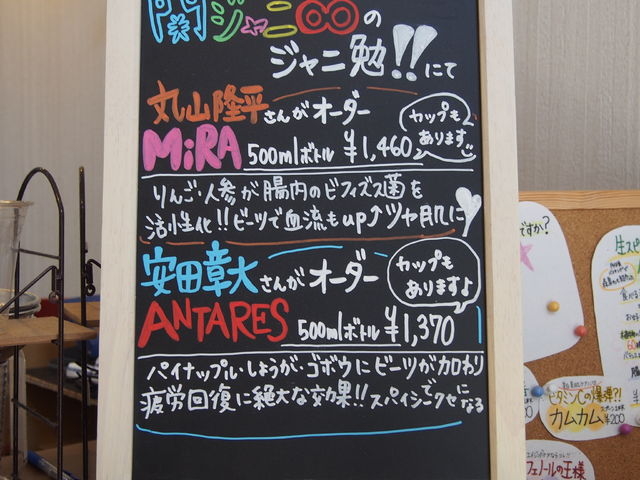 関ジャニ∞の
ジャニ勉!!にて
丸山隆平さんがオーダー
カップも
あります
MiRA 500mlボトル ¥1,460
りんご・人参が腸内のビフィズス菌を
活性化!!ビーツで血流もup↑ツヤ肌に
安田章大さんがオーダー
カップも
ありますよ
ANTARES 500mlボトル ¥1,370
パイナップル・しょうが・ゴボウにビーツが加わり
疲労回復に絶大な効果!!スパイシーでクセになる
ですか?
生スピ
ビタミンCの爆弾?!
カムカム ¥200
フェノールの王様